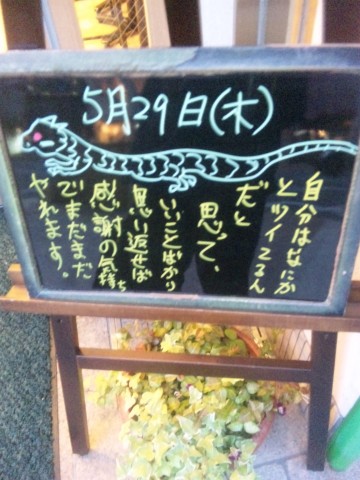 5月29日(木)
自分はなにか
とツイてるん
だと
思って、
いいことばかり
思い返せば
感謝の気持ち
でまだまだ
やれます。